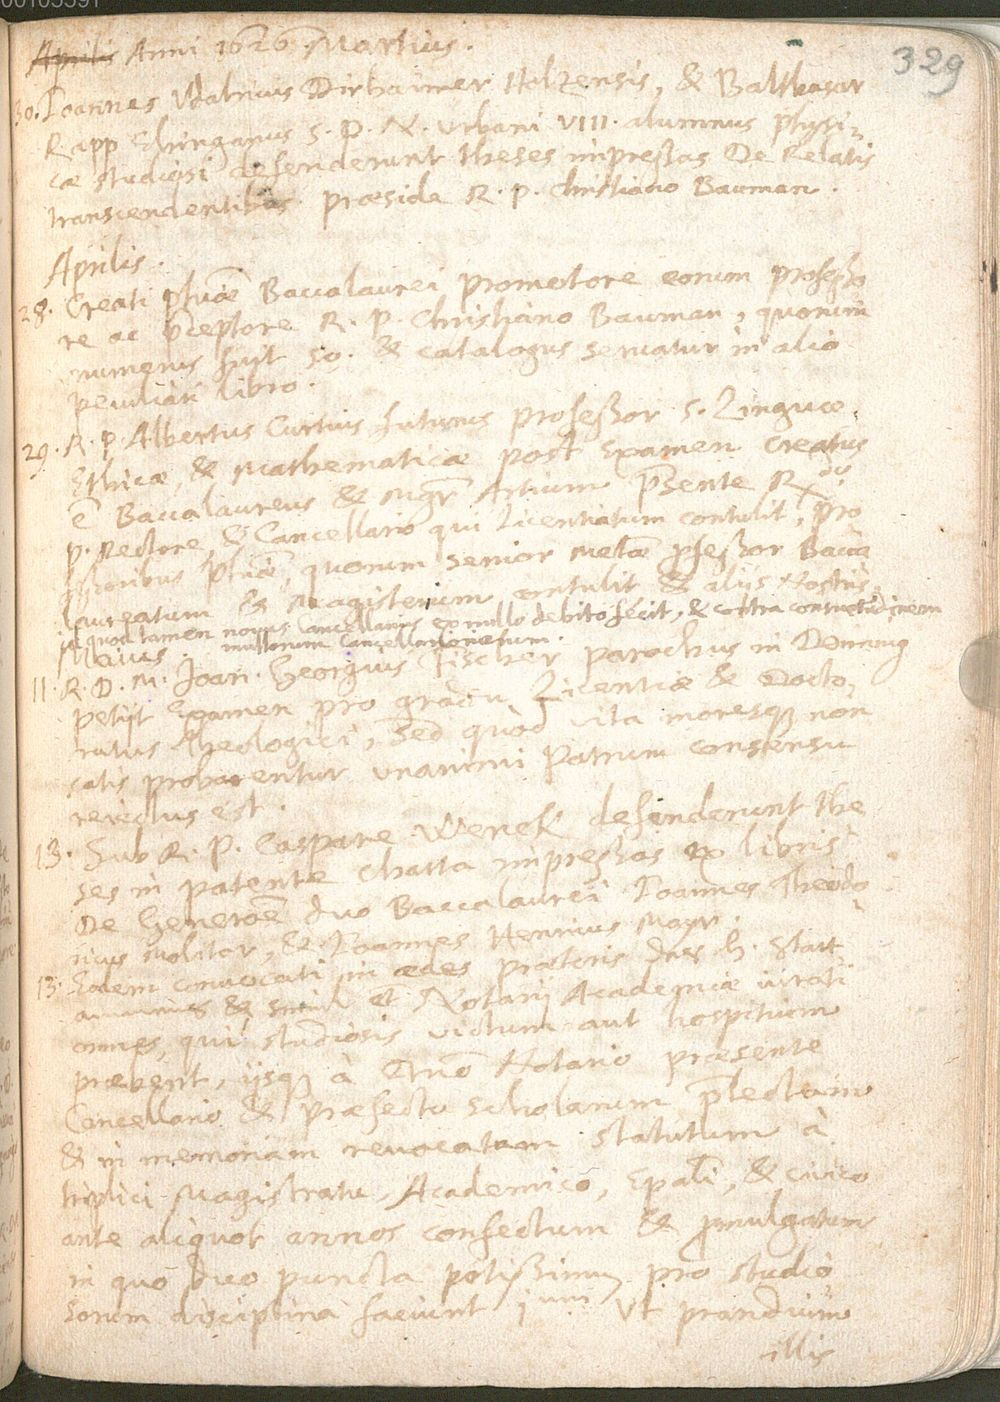 00105391
329
Aprilis Anni 1626 Martius.
30. Ioannes Vdalricus Dirhaimer Holzensis, & Balthasar
Rapp Ehinganus S. D. N. Vrbani VIII. alumnus physi-
cæ studiosi defenderunt theses impressas De Relatis
transcendentibus præside R. P. Christiano Bauman.
Aprilis.
28. Creati phiæ Baccalaurei promotore eorum professo
re ac pceptore R. P. Christiano Bauman, quorum
numerus fuit 50. & catalogus seruatur in alio
peculiari libro.
29. R. P. Albertus Curtius futurus professor S. Linguæ,
Ethicæ, & Mathematicæ post Examen creatus
ē Baccalaureus & Mgr Artium psente Rdo
P. Rectore, & Cancellario qui Licentiatum contulit, pro
fessoribus phiæ, quorum senior Metæ pfessor Bacca
laureatum & Magisterium contulit & alijs Nostris,
id quod tamen nouus Cancellarius ex nullo debito fecit, & contra consuetudinem
multorum Cancellariorum.
Maius.
11. R. D. M. Joan. Georgius Fischer parochus in
petijt Examen pro gradu Licentiæ & Docto,
ratus Theologici, sed quòd vita moresq non
satis probarentur vnanimi Patrum consensu
reiectus est.
13. Sub R. P. Caspare Wenck defenderunt the
ses in patente charta impressas ex libris
De Generõe duo Baccalaurei Ioannes Theodo
ricus Molitor, & Ioannes Henricus Mayr.
13. Eadem conuocati in ædes prætoris h. Statt
& et Notarij Academiæ iurati
omnes, qui studiosis victum aut hospitium
præbent, ijsq à Notario præsente
Cancellario & præfecto scholarum plectum
& in memoriam reuocatum statutum à
triplici Magistratu, Academico, Epali, & ciuico
ante aliquot annos confectum & pmulgatum
in quo duo puncta potissimum pro studio
sorum disciplina faciunt 1um Vt prandium
illis